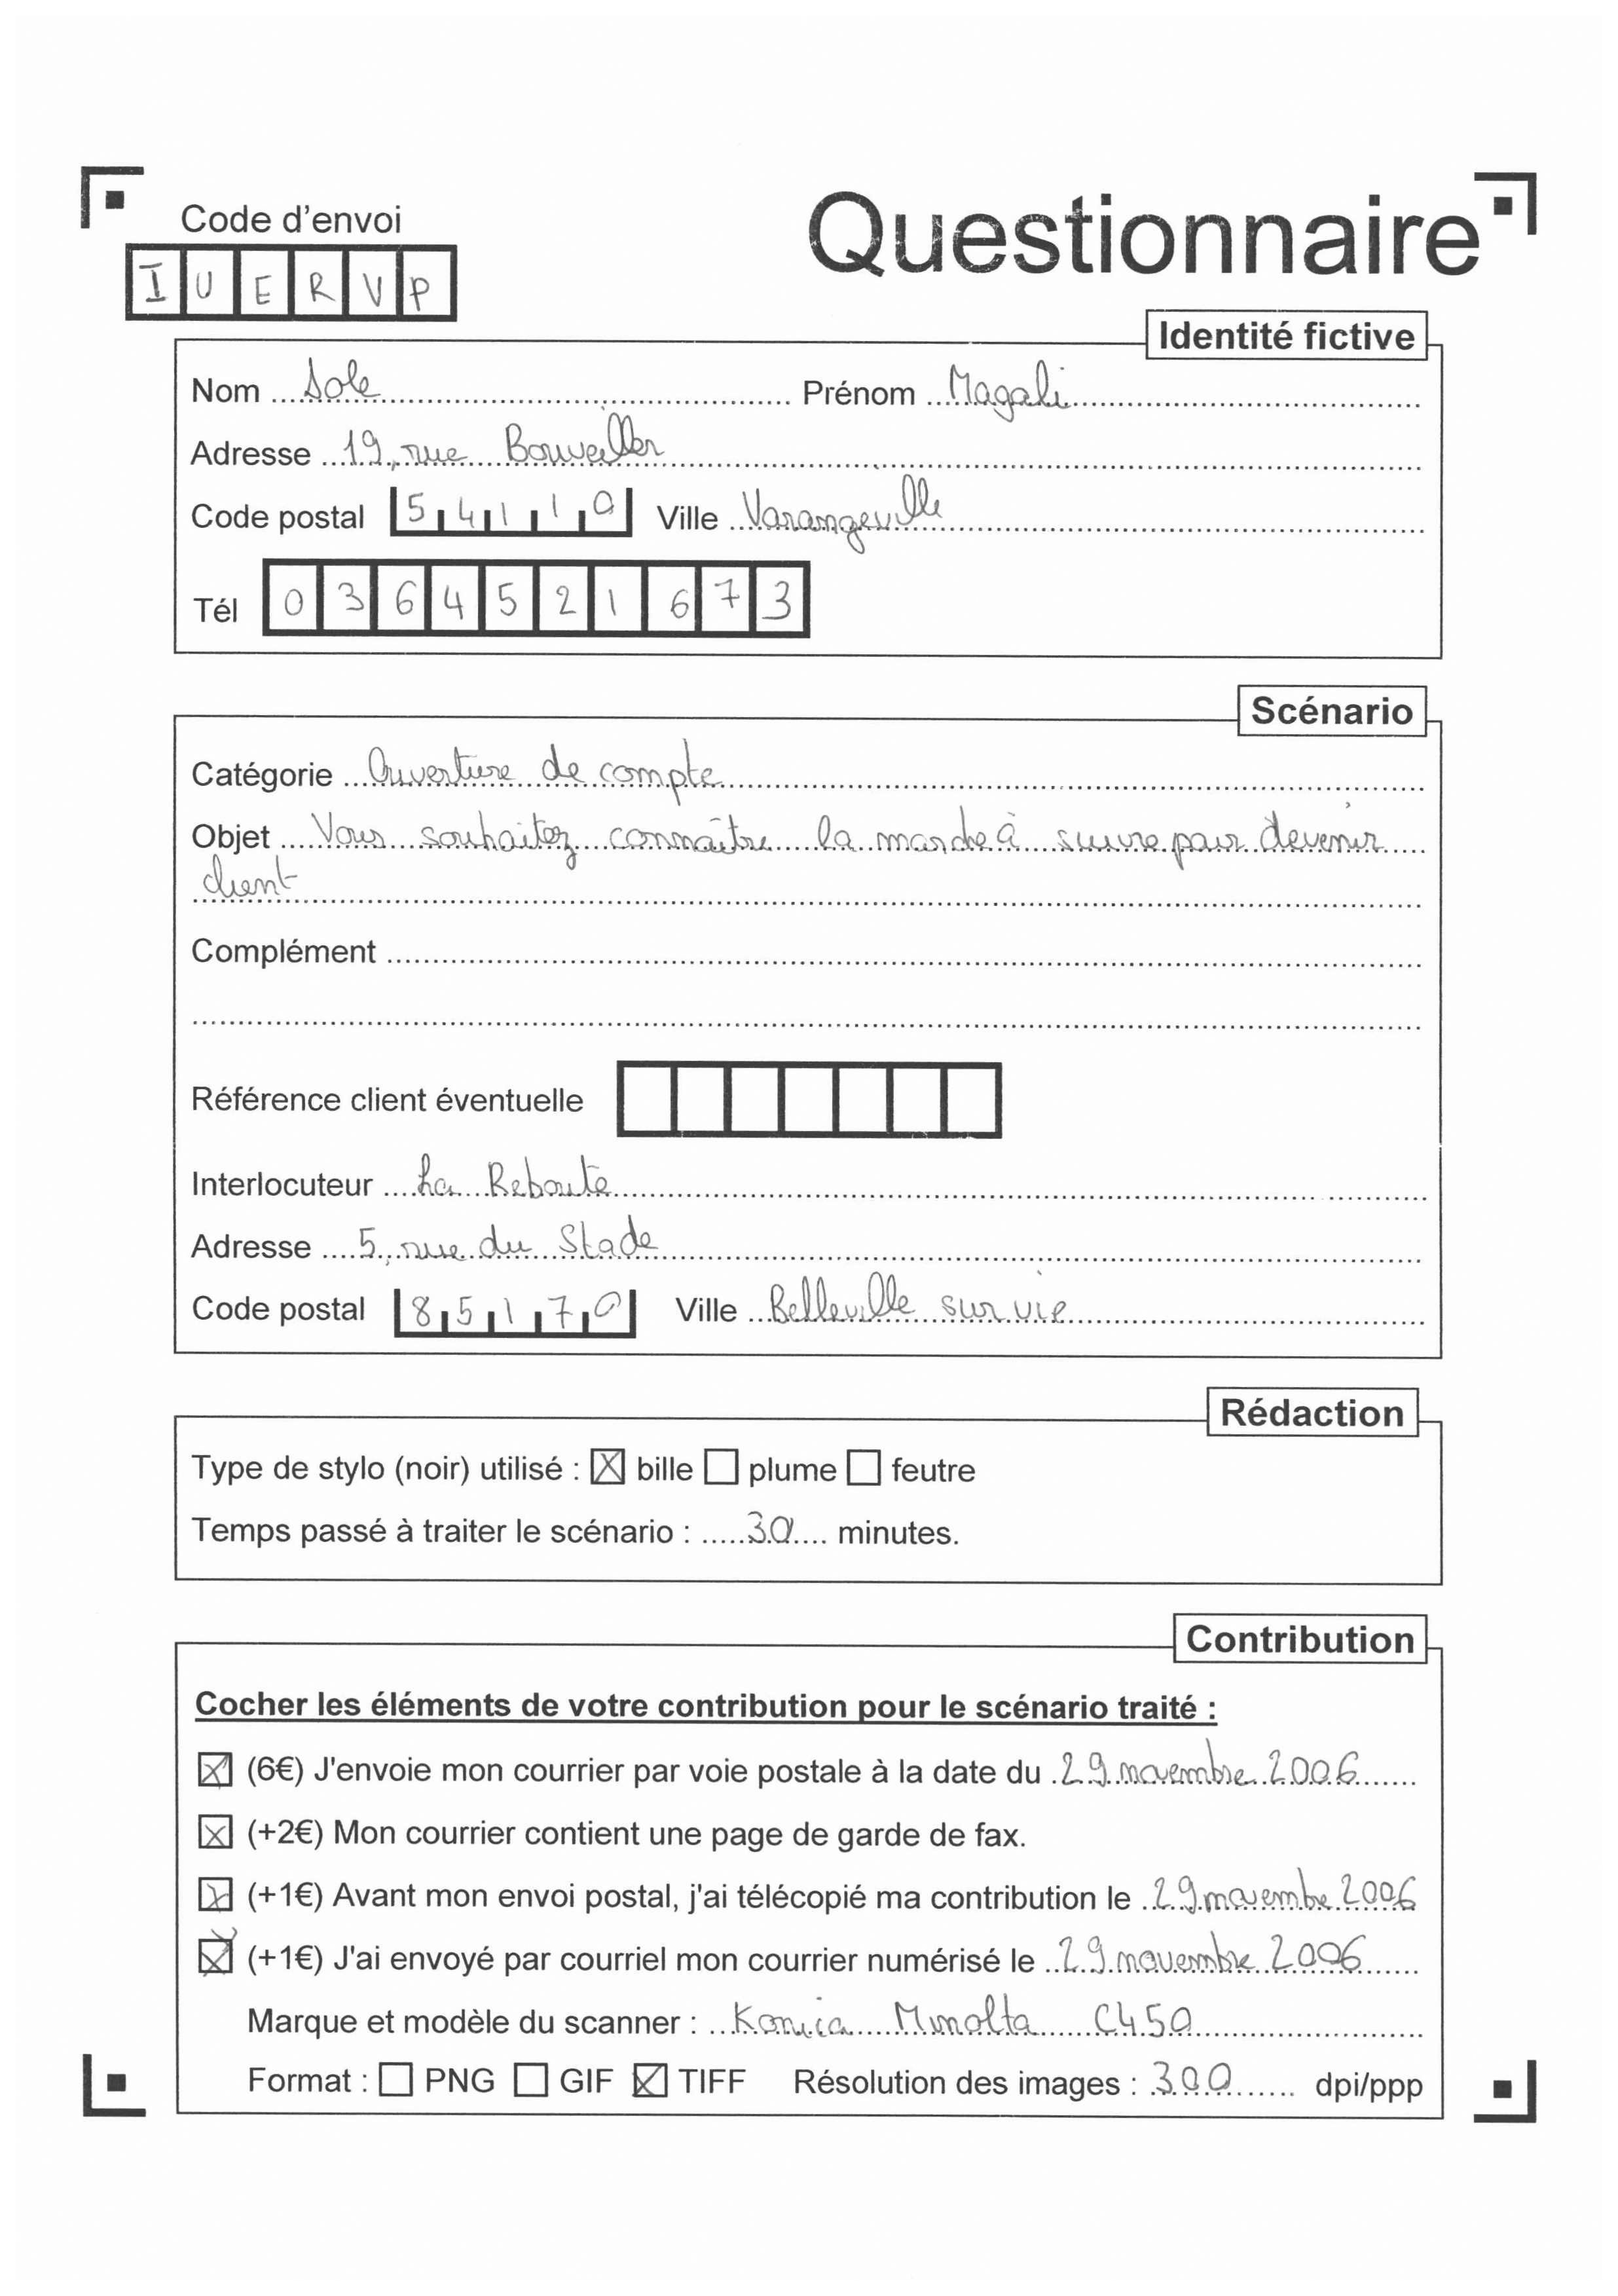 Code d'envoi
Questionnaire
I U E R V P
Identité fictive
Nom Sole Prénom Magali
Adresse 19, rue Bouweiller
Code postal 54110 Ville Varangeville
Tél 0364521673
Scénario
Catégorie Ouverture de compte
Objet Vous souhaitez connaître la marche à suivre pour devenir
client
Complément
Référence client éventuelle
Interlocuteur La Reboute
Adresse 5, rue du Stade
Code postal 85170 Ville Belleville sur vie
Rédaction
Type de stylo (noir) utilisé : ☒ bille ☐ plume ☐ feutre
Temps passé à traiter le scénario : 30 minutes.
Contribution
Cocher les éléments de votre contribution pour le scénario traité :
☒ (6€) J'envoie mon courrier par voie postale à la date du 29 novembre 2006
☒ (+2€) Mon courrier contient une page de garde de fax.
☒ (+1€) Avant mon envoi postal, j'ai télécopié ma contribution le 29 novembre 2006
☒ (+1€) J'ai envoyé par courriel mon courrier numérisé le 29 novembre 2006
Marque et modèle du scanner : Konica Minolta C450
Format : ☐ PNG ☐ GIF ☒ TIFF Résolution des images : 300 dpi/ppp